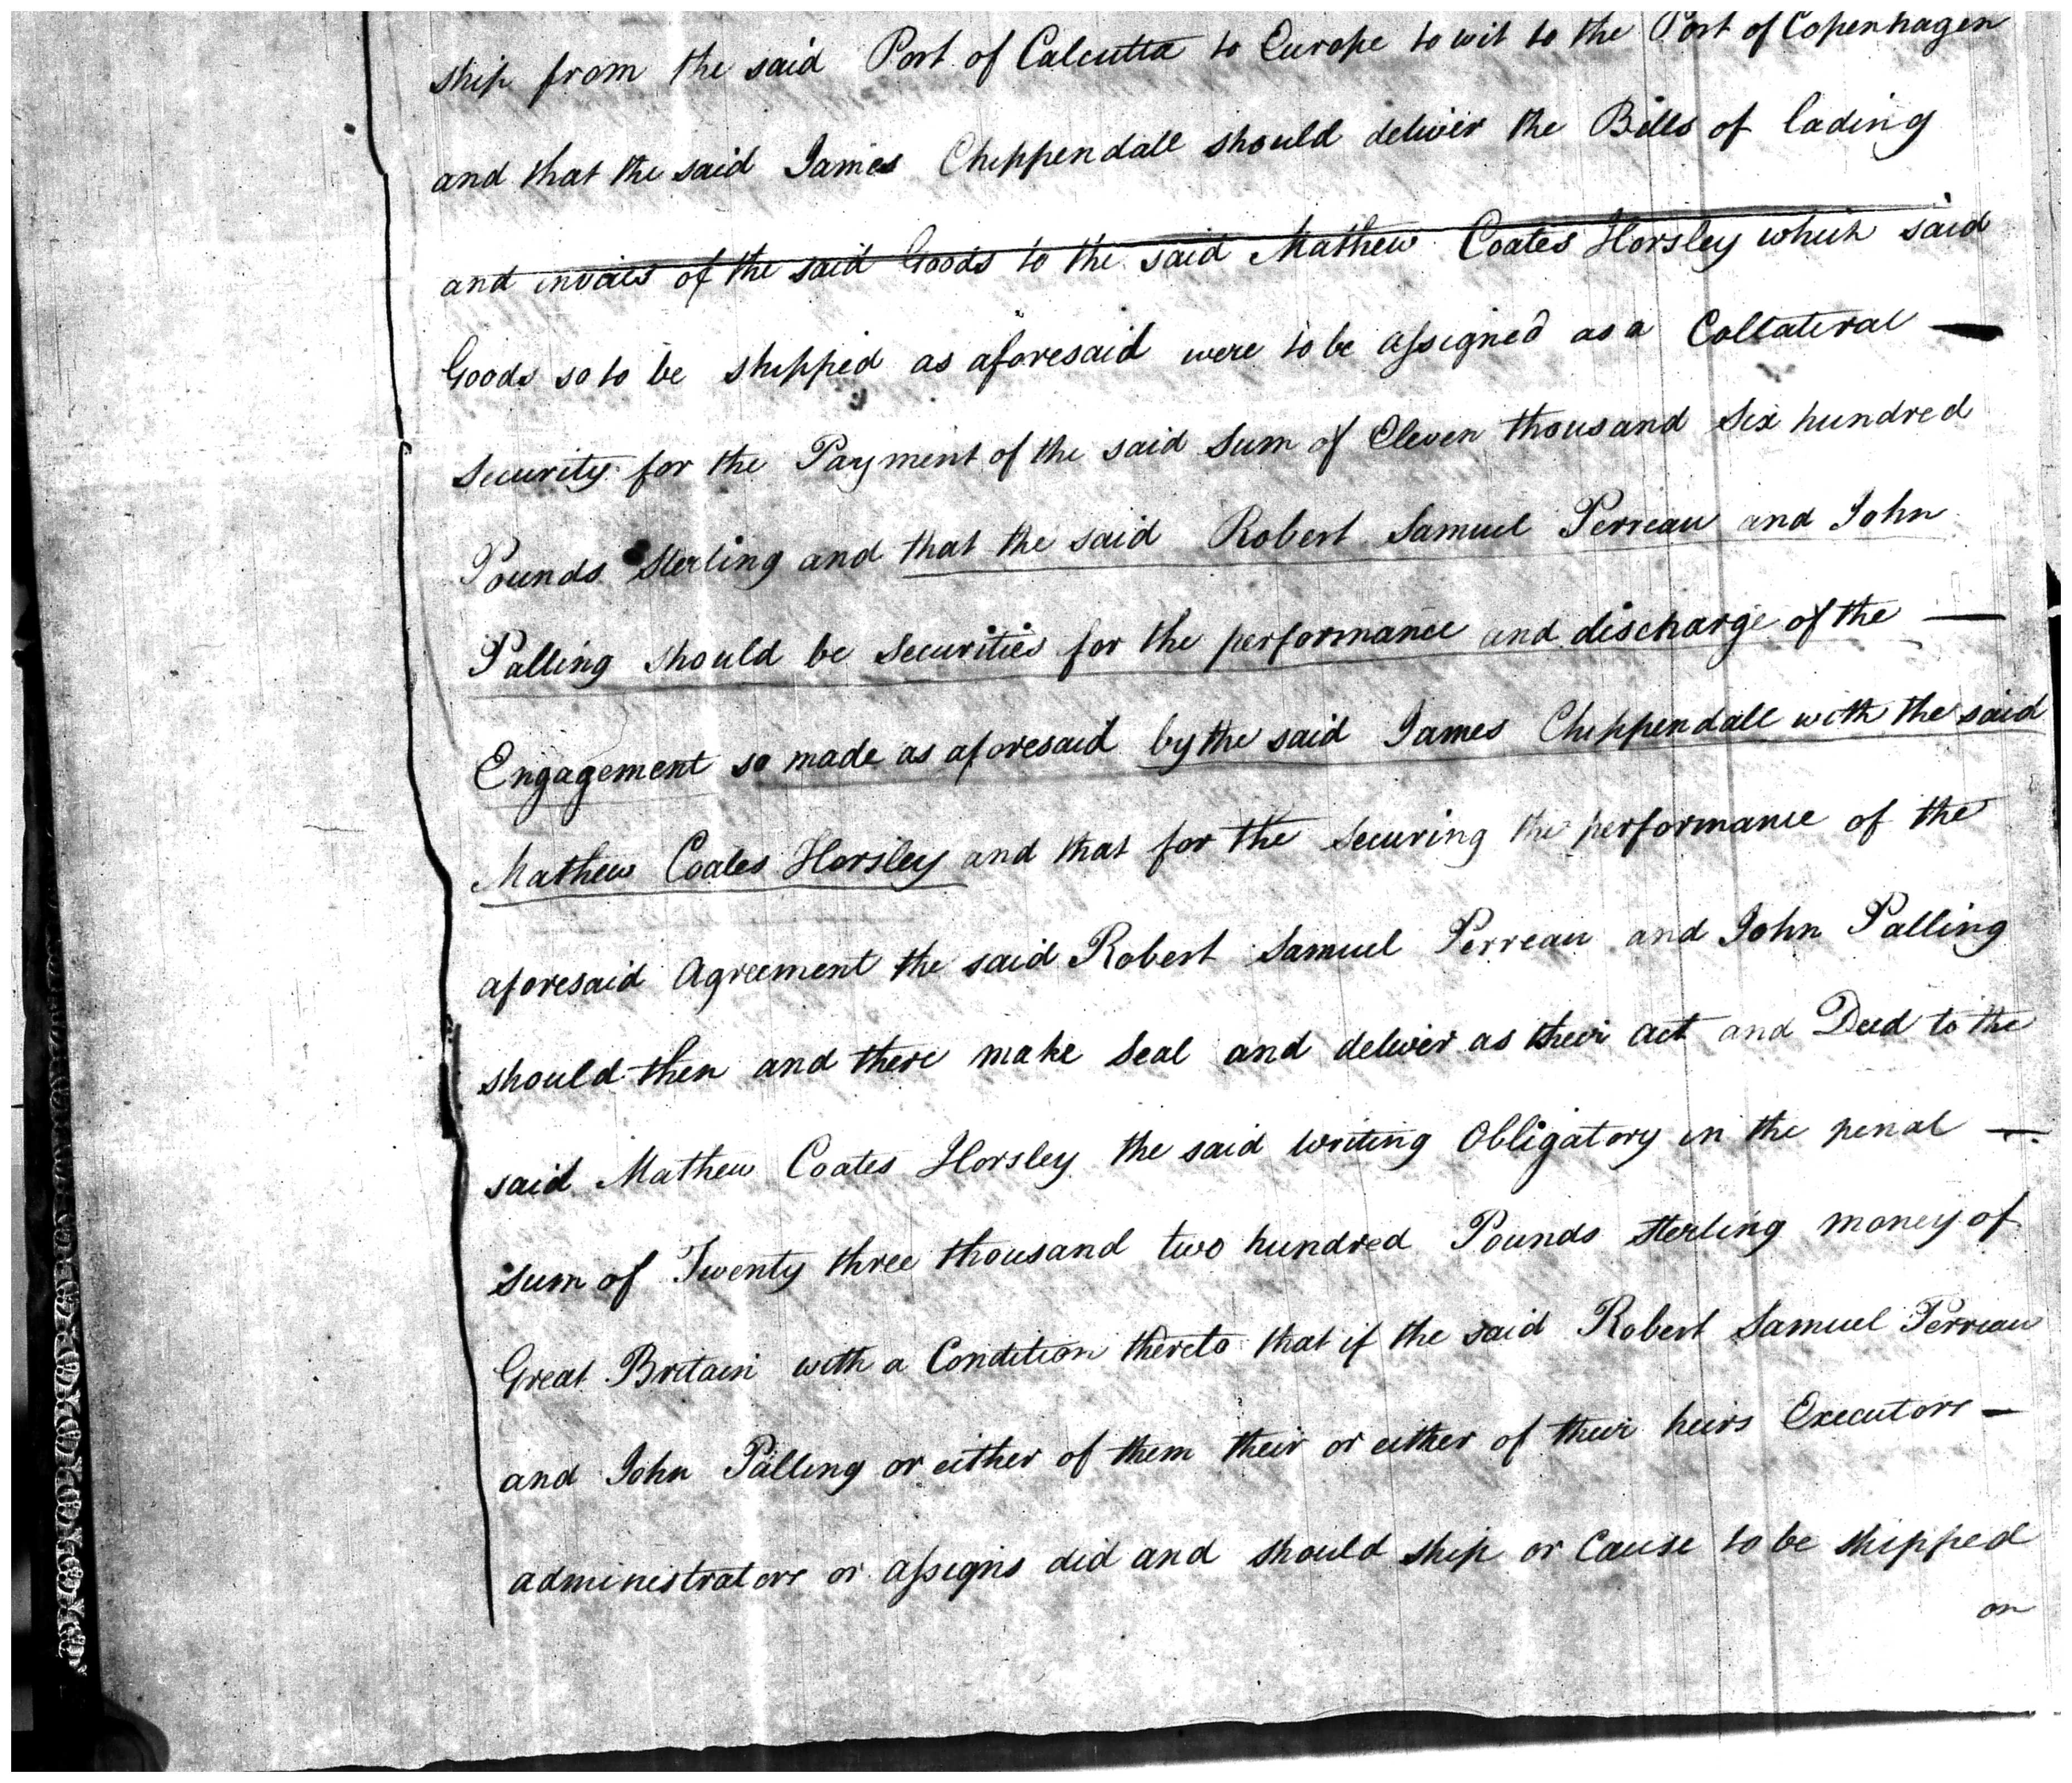 ship from the said Port of Calcutta to Europe to wit to the Port of Copenhagen
and that the said James Chippendall should deliver the Bills of lading
and invoies of the said Goods to the said Mathew Coates Horsley which said
Goods so to be shipped as aforesaid were to be assigned as a Collateral —
security for the Payment of the said Sum of Eleven thousand Six hundred
Pounds Sterling and that the said Robert Samuel Perreau and John
Palling should be Securities for the performance and discharge of the —
Engagement so made as aforesaid by the said James Chippendall with the said
Mathew Coates Horsley and that for the Securing the performance of the
aforesaid Agreement the said Robert Samuel Perreau and John Palling
should then and there make Seal and deliver as their act and Deed to the
said Mathew Coates Horsley the said Writing Obligatory in the penal —
Sum of Twenty three thousand two hundred Pounds Sterling money of
Great Britain with a Condition thereto that if the said Robert Samuel Perreau
and John Palling or either of them their or either of their heirs Executors —
administrators or assigns did and should ship or Cause to be shipped
on